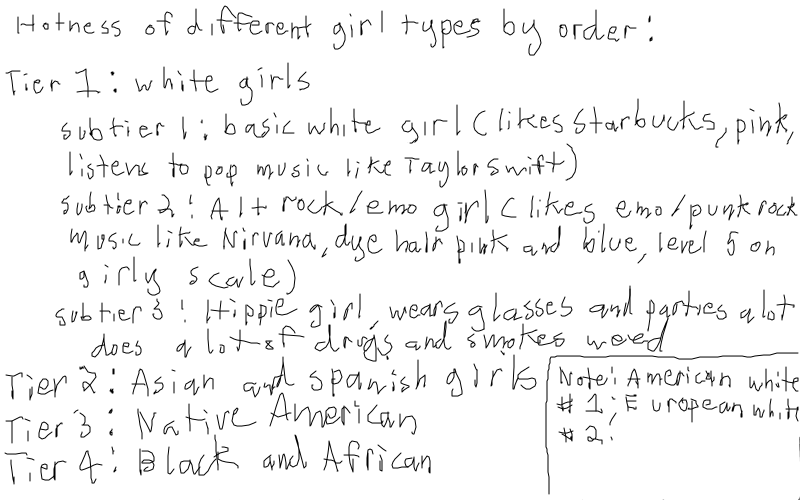 Hotness of different girl types by order:
Tier 1: white girls
subtier 1: basic white girl (likes Starbucks, pink,
listens to pop music like Taylor Swift)
subtier 2: Alt rock/emo girl (likes emo/punk rock
music like Nirvana, dye hair pink and blue, level 5 on
girly scale)
subtier 3: Hippie girl, wears glasses and parties a lot
does a lot of drugs and smokes weed
Tier 2: Asian and spanish girls
Tier 3: Native American
Tier 4: Black and African
Note: American white
# 1; European white
# 2.